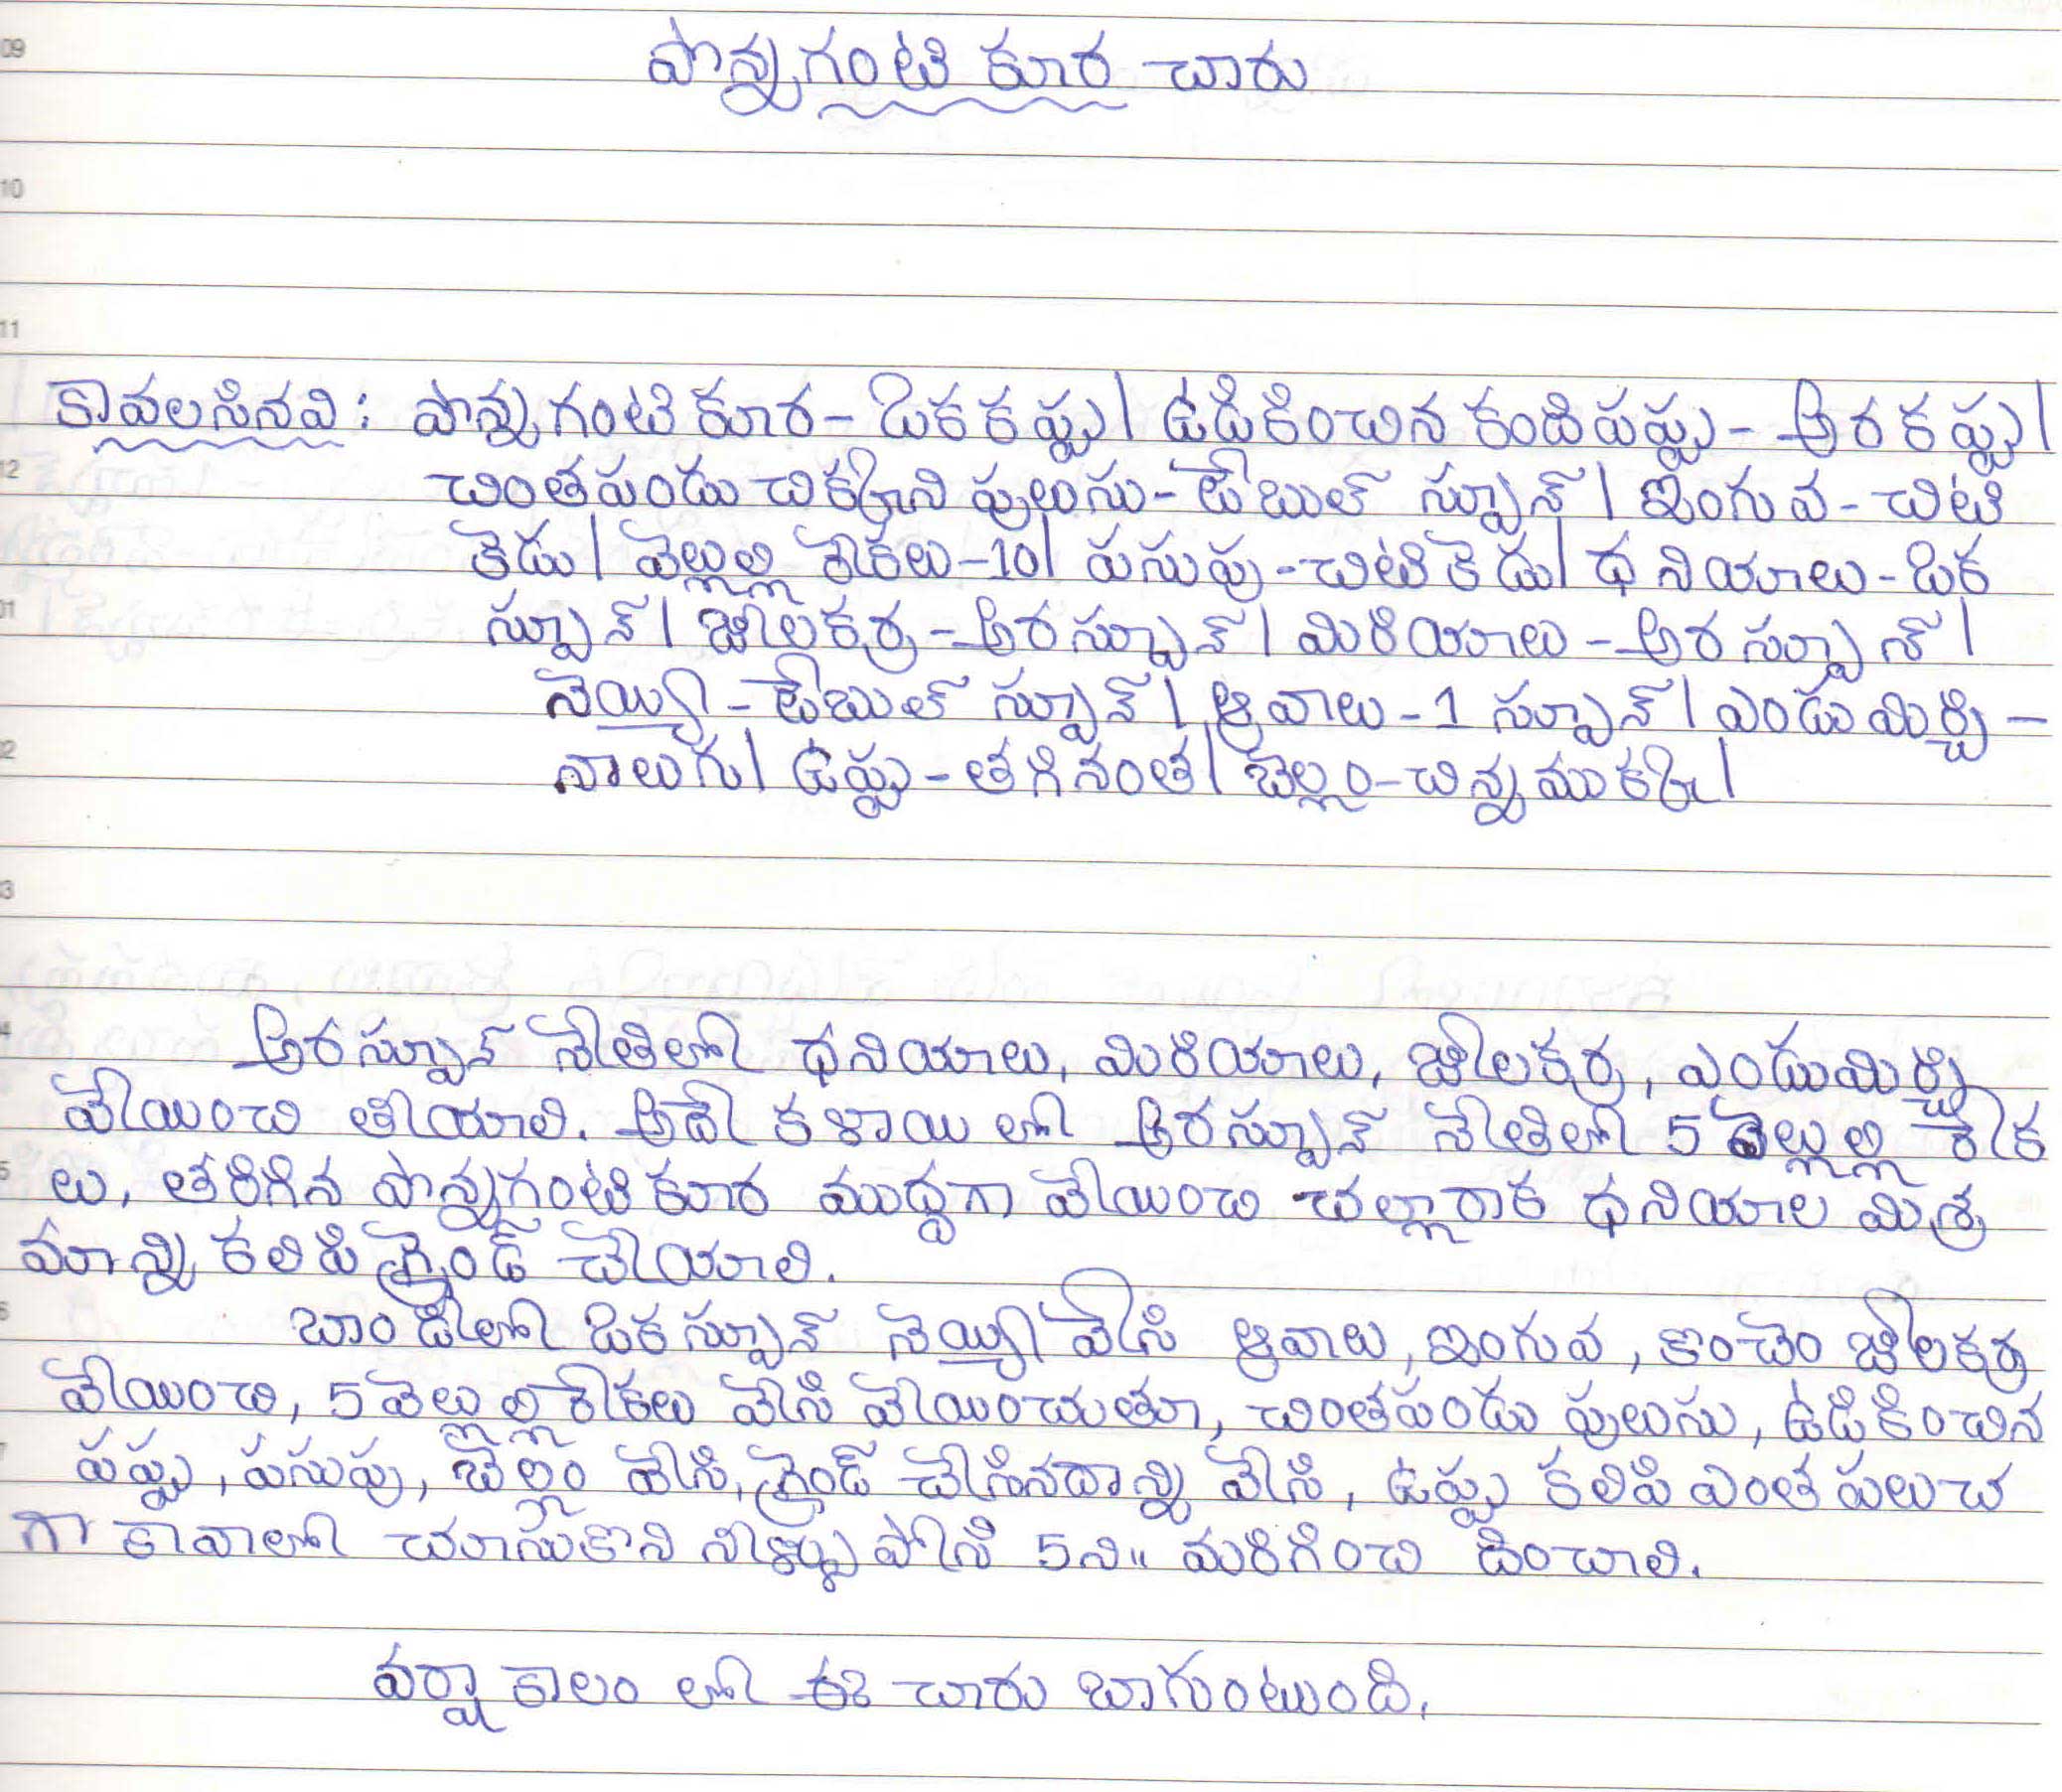 పొన్నగంటి కూర చారు
కావలసినవి: పొన్నగంటికూర - ఒక కప్పు| ఉడికించిన కందిపప్పు - అరకప్పు|
చింతపండు చిక్కని పులుసు - టేబుల్ స్పూన్| ఇంగువ - చిటి
కెడు| వెల్లుల్లి రేకలు - 10| పసుపు - చిటికెడు| ధనియాలు - ఒక
స్పూన్| జీలకర్ర - అరస్పూన్| మిరియాలు - అరస్పూన్|
నెయ్యి - టేబుల్ స్పూన్| ఆవాలు - 1 స్పూన్| ఎండుమిర్చి -
నాలుగు| ఉప్పు - తగినంత| బెల్లం - చిన్నముక్క|
అరస్పూన్ నేతిలో ధనియాలు, మిరియాలు, జీలకర్ర, ఎండుమిర్చి
వేయించి తీయాలి. అదే కళాయి లో అరస్పూన్ నేతిలో 5 వెల్లుల్లి రేక
లు, తరిగిన పొన్నగంటికూర ముద్దగా వేయించి చల్లారాక ధనియాల మిశ్ర
మాన్ని కలిపి గ్రైండ్ చేయాలి.
బాండీలో ఒకస్పూన్ నెయ్యి వేసి ఆవాలు, ఇంగువ, కొంచెం జీలకర్ర
వేయించి, 5 వెల్లుల్లి రేకలు వేసి వేయించుతూ, చింతపండు పులుసు, ఉడికించిన
పప్పు, పసుపు, బెల్లం వేసి, గ్రైండ్ చేసినదాన్ని వేసి, ఉప్పు కలిపి ఎంత పలుచ
గా కావాలో చూసుకొని నీళ్ళు పోసి 5ని॥ మరిగించి దించాలి.
వర్షాకాలం లో ఈ చారు బాగుంటుంది.
09
10
11
12
01
02
3
4
5
6
7